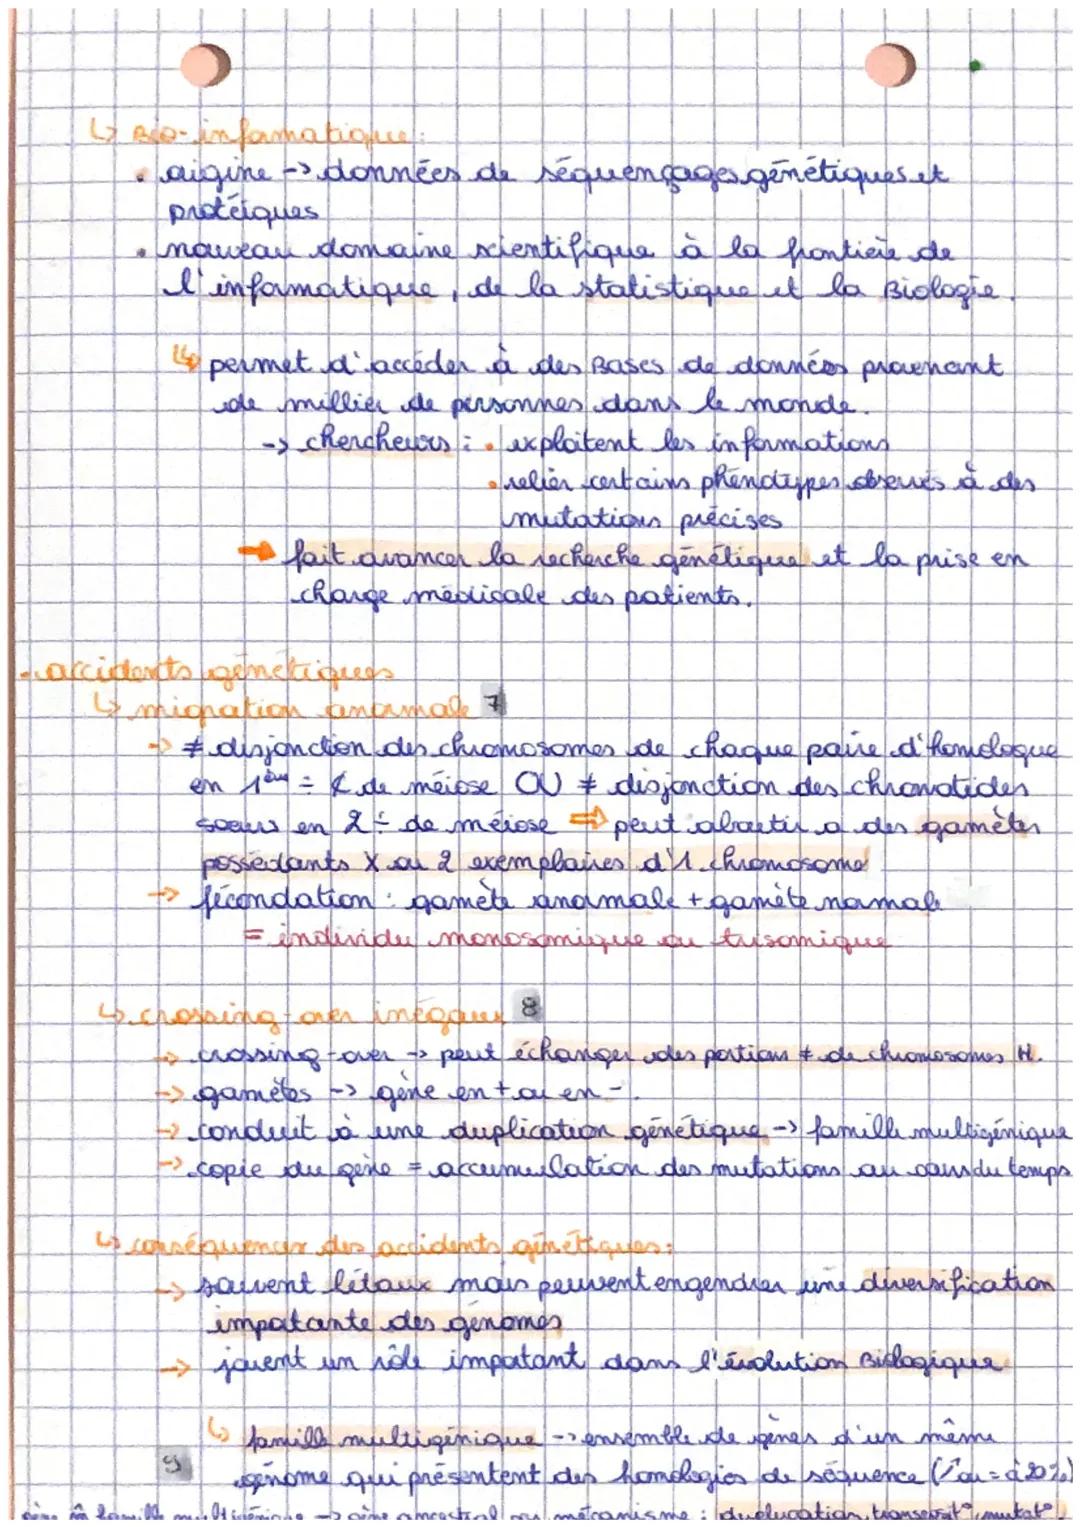 ↳ Bio-informatique:
• origine -> données de séquençages génétiques et
protéiques
• nouveau domaine scientifique à la frontière de
l'informatique, de la statistique et la Biologie.
↳ permet d'accéder à des Bases de données provenant
de millier de personnes dans le monde.
-> chercheurs : • exploitent les informations
• relier certains phénotypes observés à des
mutations précises
➡ fait avancer la recherche génétique et la prise en
charge médicale des patients.
- accidents génétiques
↳ migration anormale 7
-> ≠ disjonction des chromosomes de chaque paire d'homologue
en 1ère ÷ ₵ de méiose OU ≠ disjonction des chromatides
soeurs en 2 ÷ de méiose ⇒ peut aboutir a des gamètes
possédants X ou 2 exemplaires d'1 chromosome
-> fécondation : gamète anormale + gamète normale
= individu monosomique ou trisomique
↳ crossing-over inégaux 8
-> crossing-over -> peut échanger des portions ≠ de chromosomes H.
-> gamètes -> gène en + ou en -.
-> conduit à une duplication génétique -> famille multigénique
-> copie du gène = accumulation des mutations au cours du temps
↳ conséquences des accidents génétiques:
-> souvent létaux mais peuvent engendrer une diversification
importante des génomes
-> jouent un rôle important dans l'évolution Biologique
↳ famille multigénique -> ensemble de gènes d'un même
9 génome qui présentent des homologies de séquence (↗ ou = à 20%)
gène m̂ famille multigénique -> gène ancestral par mécanisme : duplication, transposit°, mutat°